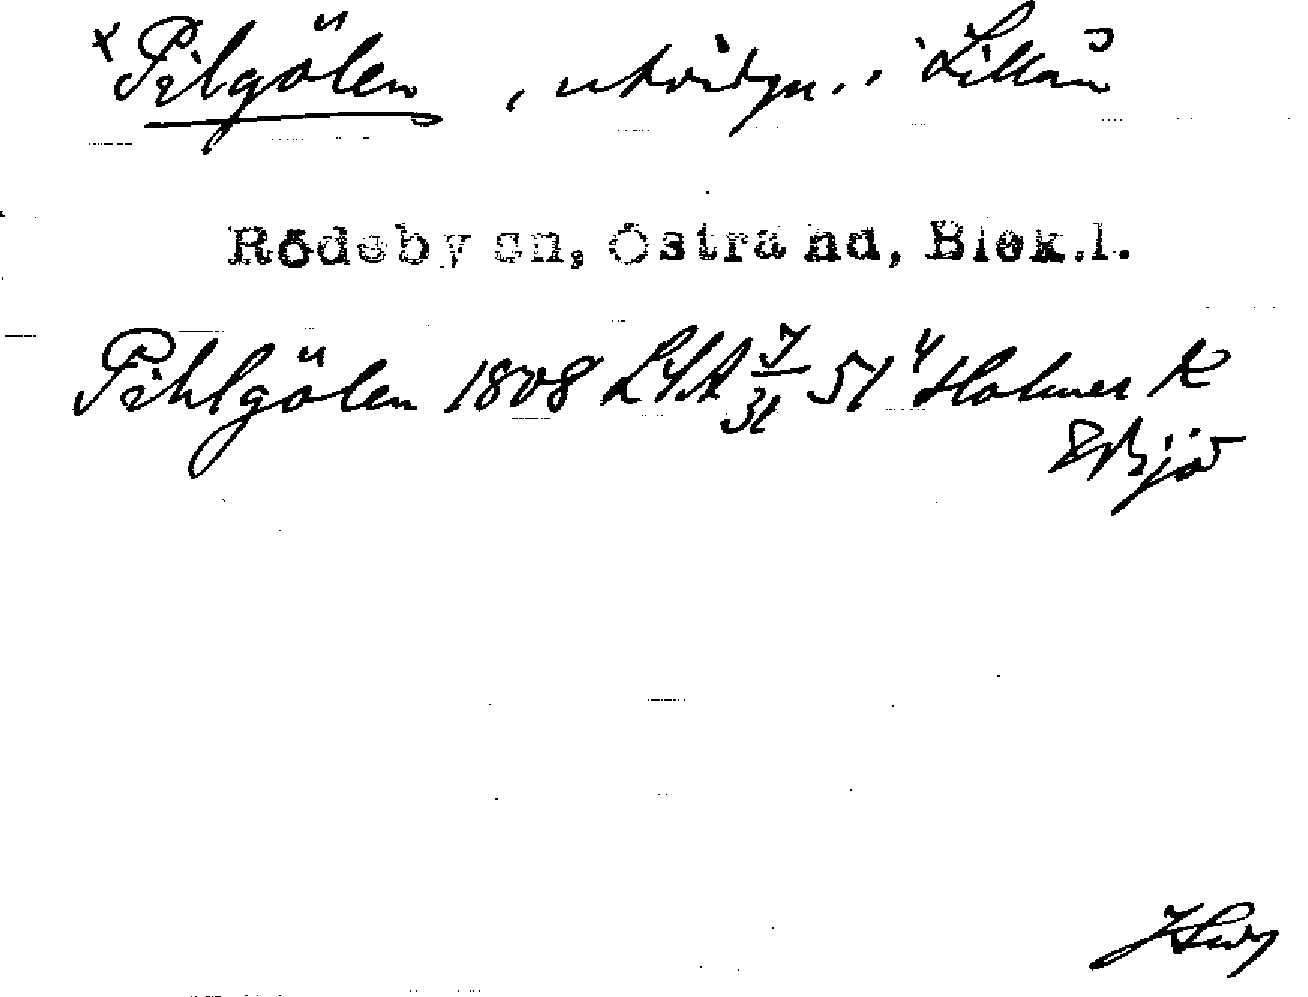 x Pilgölen, utvidgn. i Lillån
Rödeby sn, Östra hd, Blek.l.
Pihlgölen 1808 LSA J/31 51 4 Holmes K